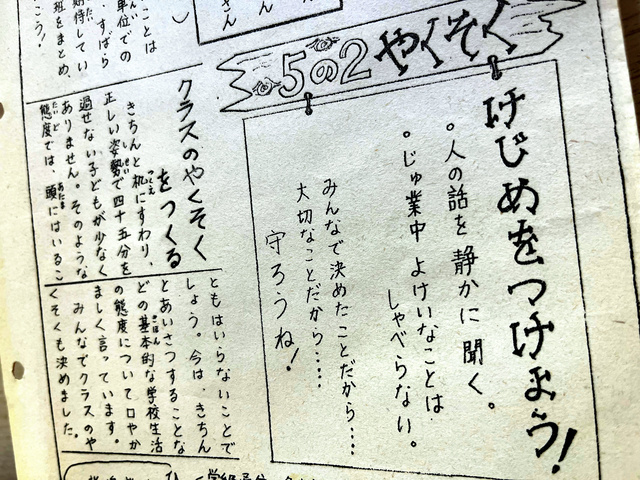 5の2 やくそく
けじめをつけよう!
。人の話を静かに聞く。
。じゅ業中よけいなことは
しゃべらない。
みんなで決めたことだから‥‥
大切なことだから‥‥
守ろうね!
クラスのやくそく
をつくる
きちんと机にすわり、
正しい姿勢で四十五分を
過せない子どもが少なく
ありません。そのような
態度では、頭にはいるこ
ともはいらないことで
しょう。今は、きちん
とあいさつすることな
どの基本的な学校生活
の態度について口やか
ましく言っています。
みんなでクラスのや
くそくも決めました。
ことは
単位での
、すばら
期待してい
祖をまとめ、
こう!
さん
ん